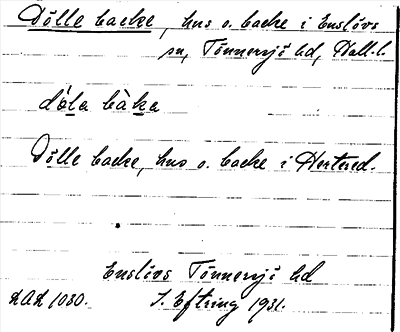 Dölle backe, hus o. backe i Enslövs
sn, Tönnersjö hd, Hall. l.
dö̀la bàka
Dölle backe, hus o. backe i Hertered.
Enslövs Tönnersjö hd
LAL 1030. J. Eftring 1931.